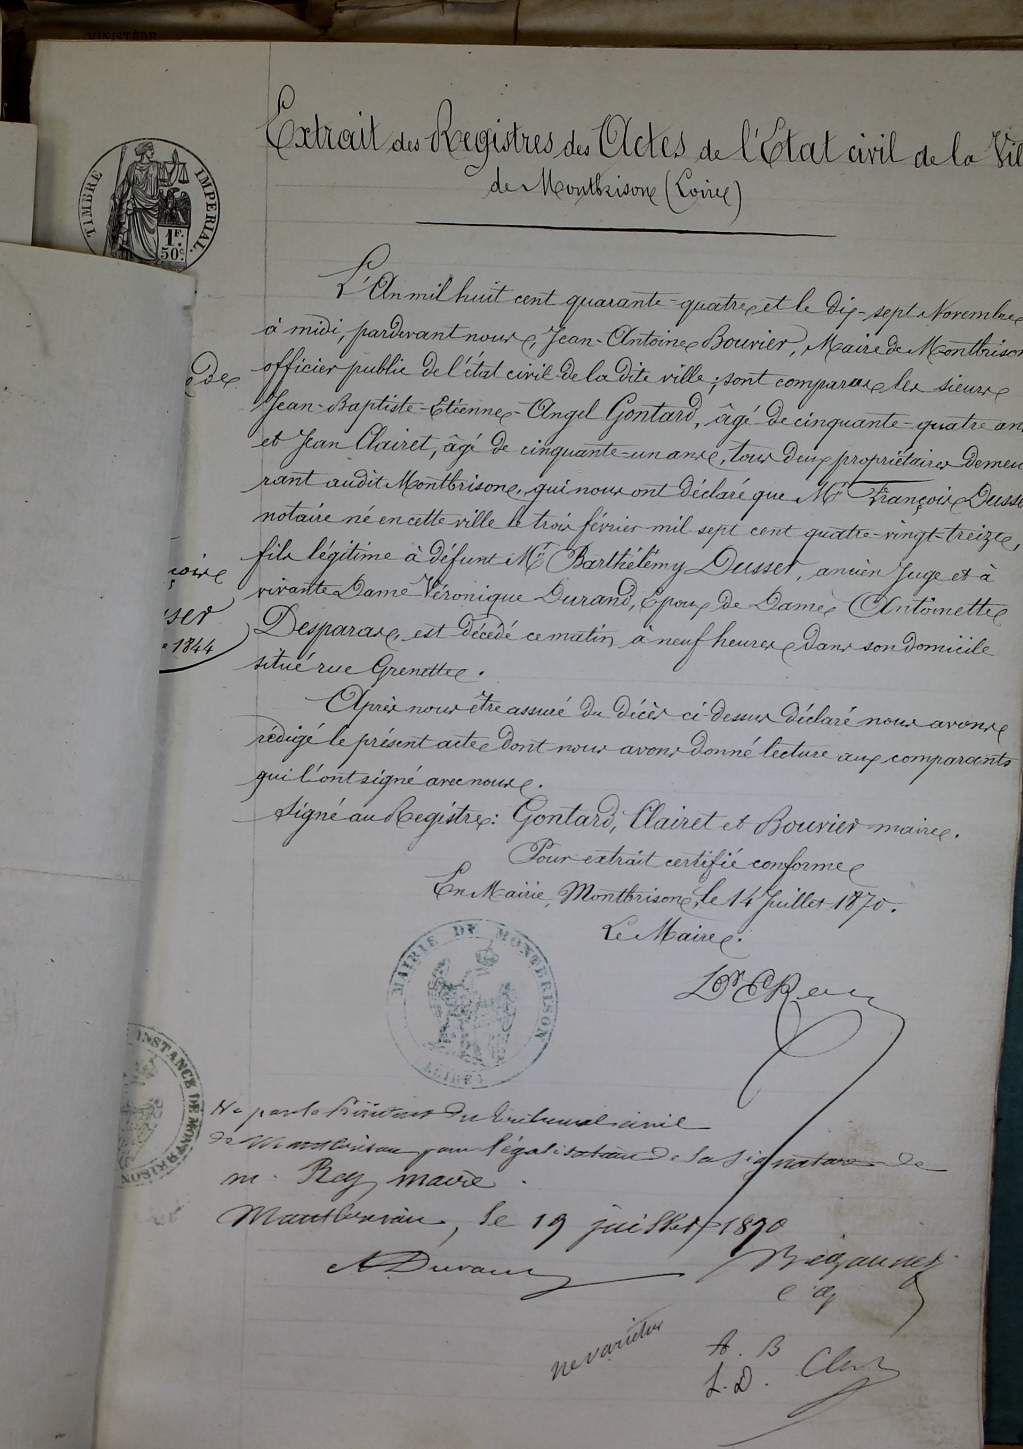 MINISTÈRE
Extrait des Registres des Actes de l'Etat civil de la Vil
de Montbrison (Loire)
TIMBRE IMPERIAL.
1F.
50c.
L'An mil huit cent quarante-quatre et le dix-sept Novembre
à midi, pardevant nous, Jean-Antoine Bouvier, Maire de Montbrison
officier public de l'état civil de la dite ville, sont comparus les sieurs
Jean-Baptiste-Etienne-Angel Gontard, âgé de cinquante-quatre ans
et Jean Clairet, âgé de cinquante-un ans, tous deux propriétaires demeu
rant audit Montbrison, qui nous ont déclaré que Mr François Dusse
notaire né en cette ville le trois février mil sept cent quatre-vingt-treize,
fils légitime à défunt Mr Barthélemy Dusser, ancien Juge et à
vivante Dame Véronique Durand, Epoux de Dame Antoinette
Desparas, est décédé ce matin à neuf heures dans son domicile
situé rue Grenette.
Après nous être assuré du décès ci-dessus déclaré nous avons
rédigé le présent acte dont nous avons donné lecture aux comparants
qui l'ont signé avec nous.
Signé au Registre: Gontard, Clairet et Bouvier maire.
Pour extrait certifié conforme
En Mairie, Montbrison, le 14 Juillet 1870.
Le Maire.
Dr Rey
MAIRIE DE MONTBRISON
(LOIRE)
de
oire
sser
1844
INSTANCE DE MONTBRISON
Vu par le Président du tribunal civil
de Montbrison pour légalisation de la signature de
m. Rey maire.
Montbrison, le 19 juillet 1870
ne varietur
A. B
L. D.